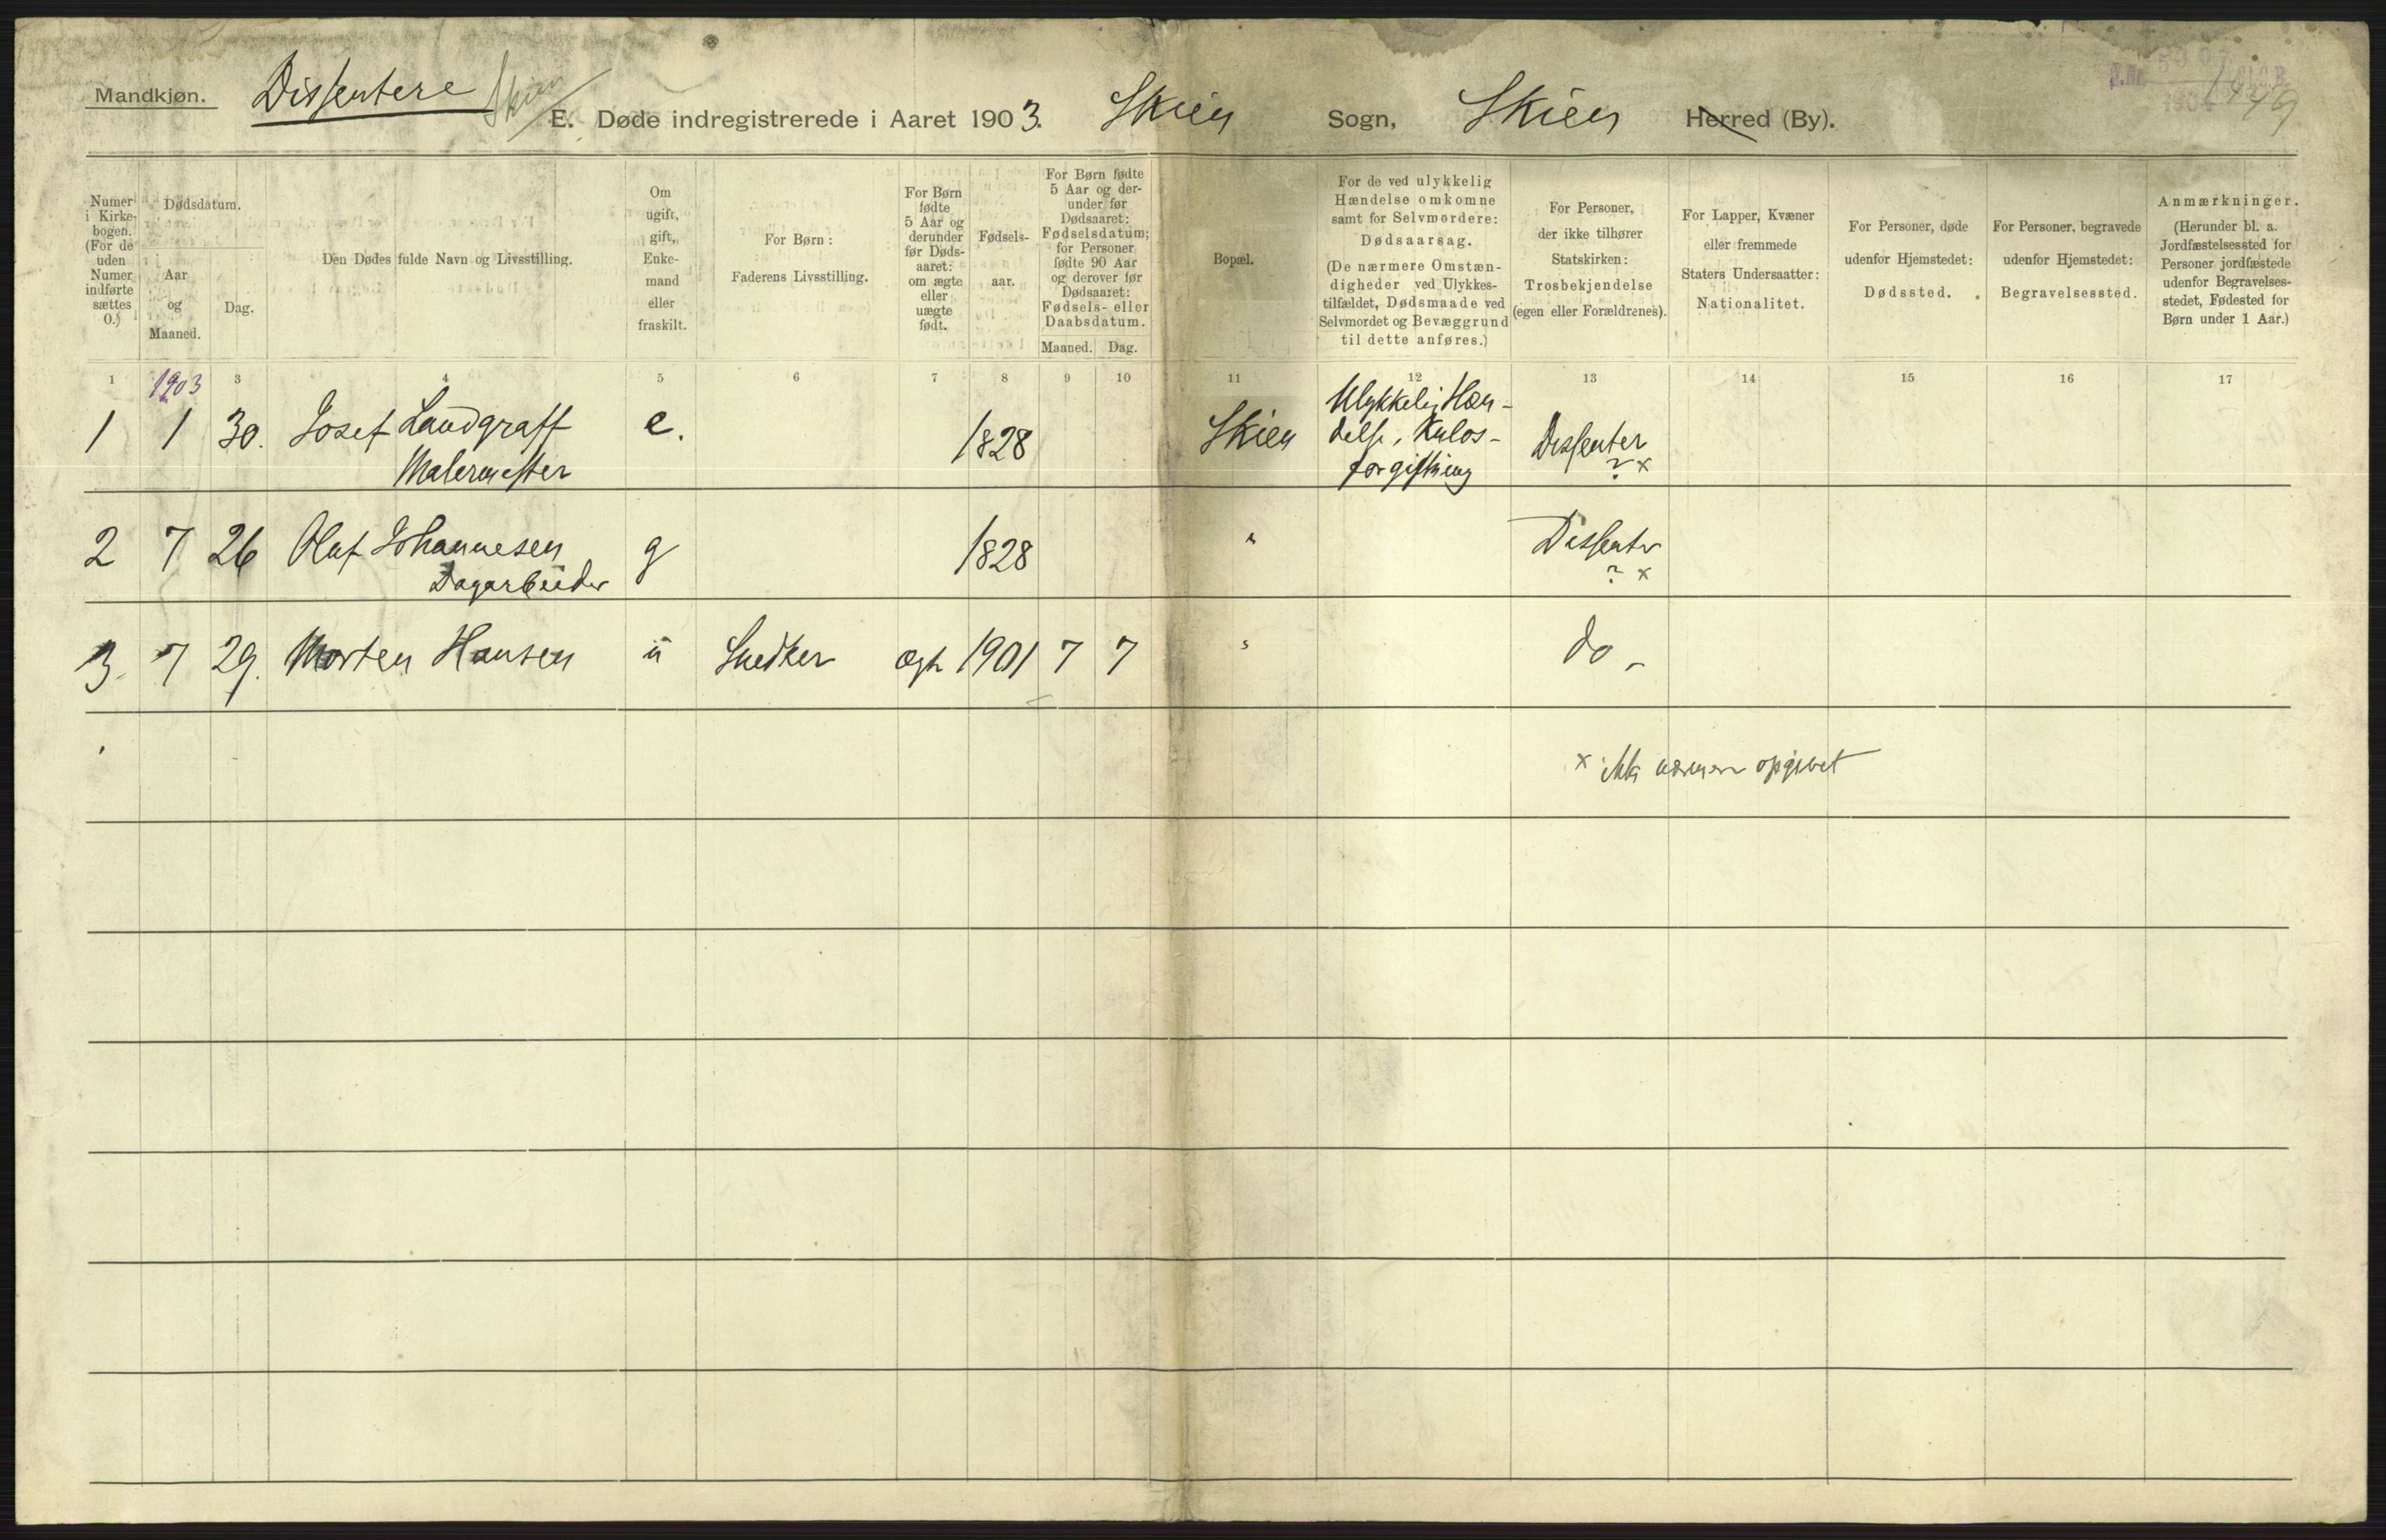 Mandkjøn. Dissentere Skien
E. Døde indregistrerede i Aaret 1903. Skien Sogn, Skien Herred (By).
J.No. 1904 S.C.B. 1449
Numer i Kirkebogen. (For de uden Numer indførte sættes 0.)
Dødsdatum.
Aar og Maaned.
Dag.
Den Dødes fulde Navn og Livsstilling.
Om ugift, gift, Enkemand eller fraskilt.
For Børn: Faderens Livsstilling.
For Børn fødte 5 Aar og derunder før Dødsaaret: om ægte eller uægte født.
Fødselsaar.
For Børn fødte 5 Aar og derunder før Dødsaaret: Fødselsdatum; for Personer fødte 90 Aar og derover før Dødsaaret: Fødsels- eller Daabsdatum.
Maaned. Dag.
Bopæl.
For de ved ulykkelig Hændelse omkomne samt for Selvmordere: Dødsaarsag. (De nærmere Omstændigheder ved Ulykkestilfældet, Dødsmaade ved Selvmordet og Bevæggrund til dette anføres.)
For Personer, der ikke tilhører Statskirken: Trosbekjendelse (egen eller Forældrenes).
For Lapper, Kvæner eller fremmede Staters Undersaatter: Nationalitet.
For Personer, døde udenfor Hjemstedet: Dødssted.
For Personer, begravede udenfor Hjemstedet: Begravelsessted.
Anmærkninger. (Herunder bl. a. Jordfæstelsessted for Personer jordfæstede udenfor Begravelsesstedet, Fødested for Børn under 1 Aar.)
1 1903 3 4 5 6 7 8 9 10 11 12 13 14 15 16 17
1 1 30. Josef Landgraff e. 1828 Skien Ulykkelig Hæn-
delse, Kulos- Dissenter
Malermester forgiftning ? x
2 7 26 Oluf Johannesen g 1828 " Dissenter
Dagarbeider ? x
3. 7 29. Morten Hansen u Snedker ægte 1901 7 7 " do -
x ikke nærmere opgivet